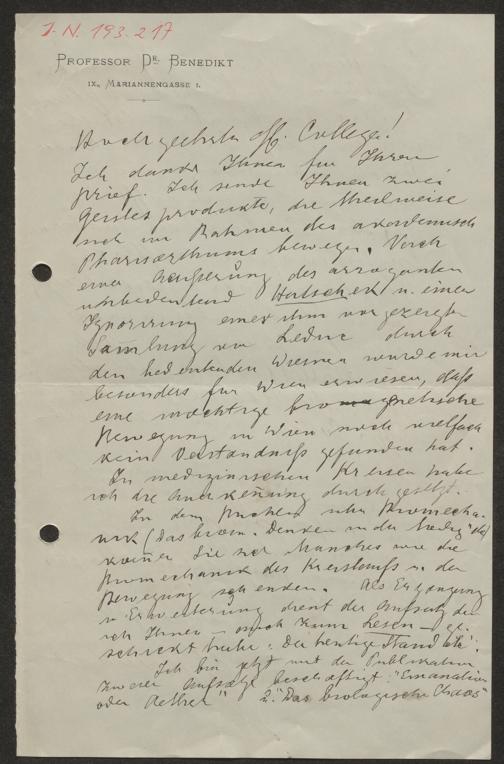 J. N. 193.217
PROFESSOR DR. BENEDIKT
IX., MARIANNENGASSE 1.
Hochgeehrter H. College!
Ich danke Ihnen für Ihren
Brief. Ich sende Ihnen zwei
Geistesprodukte, die theilweise
sich im Rahmen des akademisch
Pharisäerthums bewegen. Durch
eine Äußerung des arroganten
unbedeutend Hatschek u. einer
Ignorirung einer ihm vorgezeigten
Samlung von Leduc durch
den bedeutenden Wiesner wurde mir
besonders für Wien erwiesen, daß
eine mächtige biomagnetische
Bewegung in Wien noch vielfach
kein Verständniß gefunden hat.
In medizinischen Kreisen habe
ich die Anerkennung durchgesetzt.
In dem Buche über Biomecha-
nik (Das biom. Denken in der Medizin)
können Sie sich Manches wie die
Biomechanik des Kreislaufs u. der
Bewegung schenken. Als Ergänzung
u. Erweiterung dient der Aufsatz den
ich Ihnen – auch zum Lesen – ge-
schickt habe: Der heutige Stand etc.
Ich bin jetzt mit der Publikation
zweier Aufsätze beschäftigt: "Emanation
oder Aether" 2. "Das biologische Chaos"